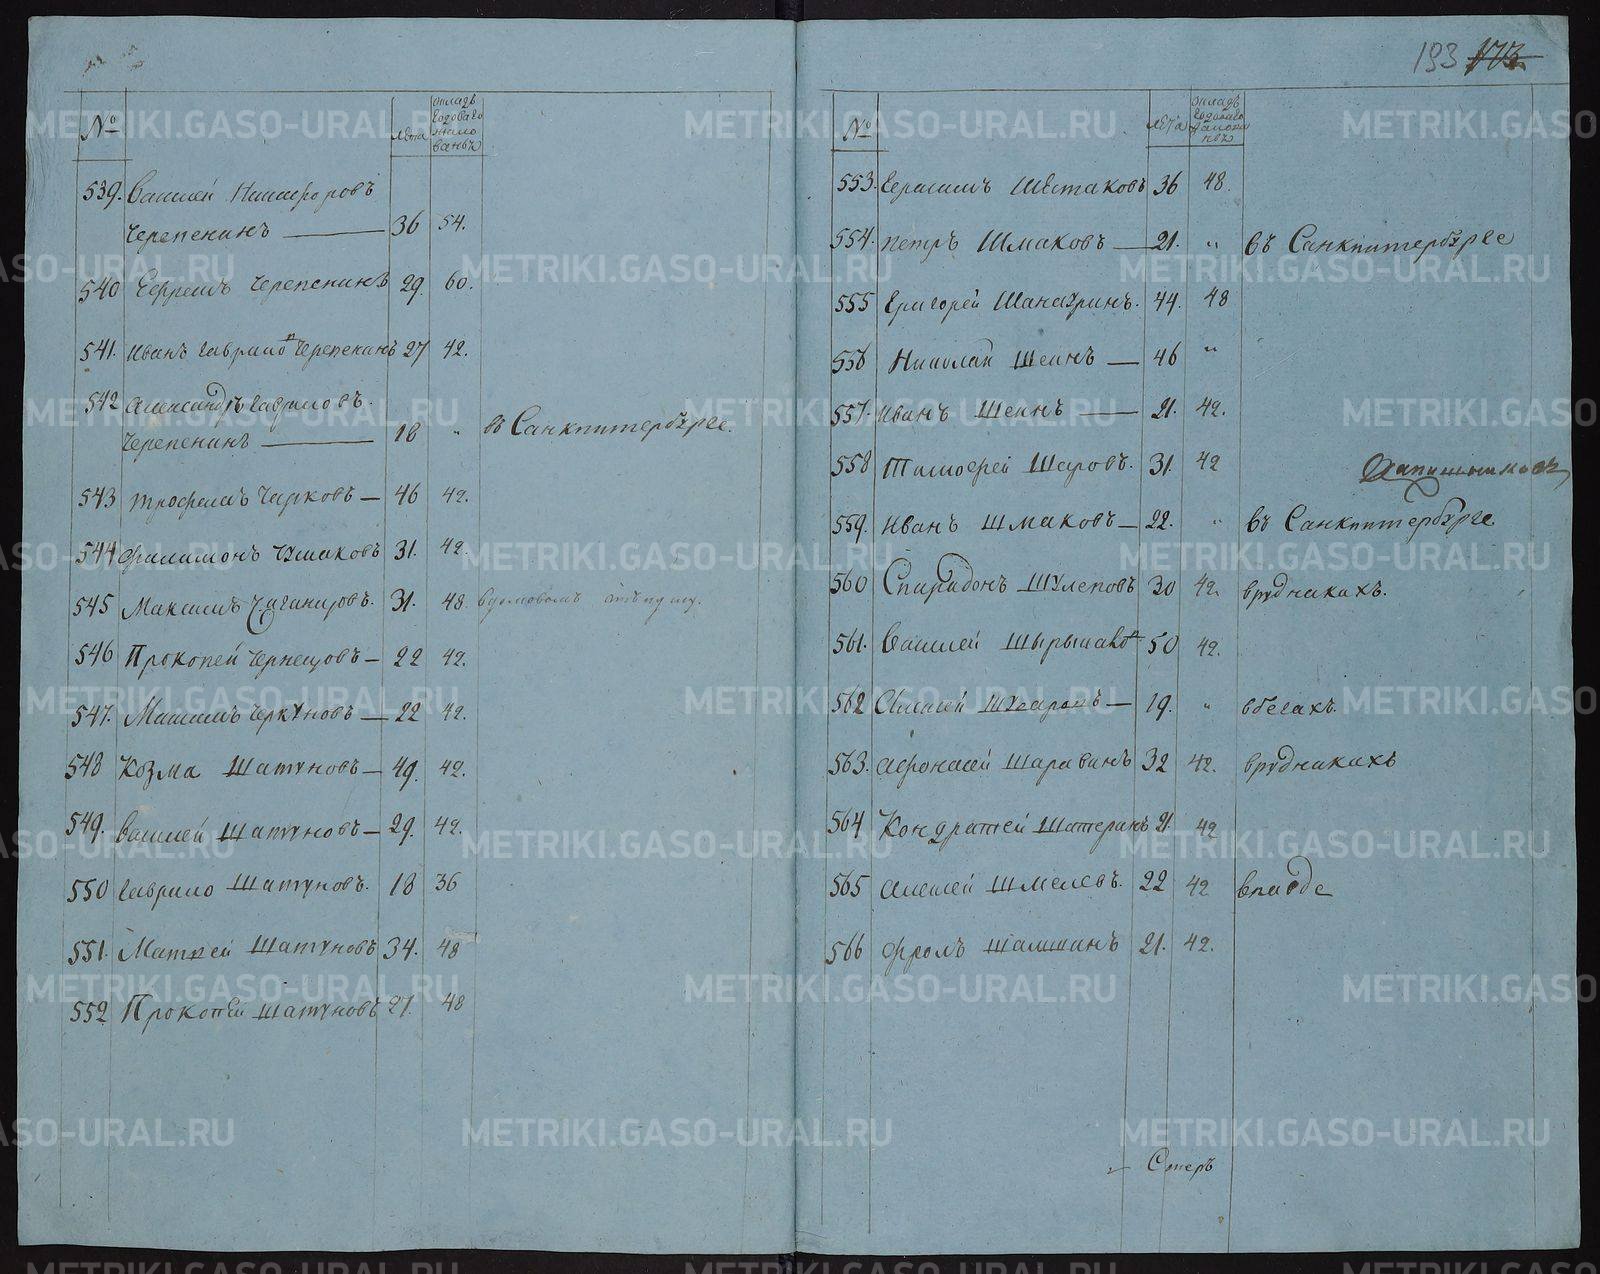 №
лета
окладъ
годоваго
жало
ванья
539. Василей Никифоровъ
Черепенинъ — 36 54.
540 Ефремъ Черепенинъ 29. 60.
541. Иванъ Гаврило Черепенинъ 27 42.
542 Александръ Гавриловъ
Черепенинъ — 18 „ въ Санкпитербурге.
543 Трофимъ Чарковъ — 46 42.
544 Филимонъ Чушаковъ 31. 42.
545 Максимъ 31. 48.
546 Прокопей Чернецовъ — 22 42.
547. Черкуновъ — 22 42.
548 Козма Шатуновъ — 49. 42.
549. Василей Шатуновъ — 29. 42.
550 Гаврило Шатуновъ. 18 36
551. Матвей Шатуновъ 34. 48
552 Прокопей Шатуновъ 27. 48
193 173
№
лета
окладъ
годоваго
жалова
нья
553. Герасимъ Шестаковъ 36 48.
554. Петръ Шмаковъ — 21. „ въ Санкпитербурге
555 Григорей Шанауринъ. 44. 48
556 Николай Шеинъ — 46 „
557. Иванъ Шеинъ — 21. 42.
558 Тимофей Шаровъ. 31. 42
559. Иванъ Шмаковъ — 22. „ въ Санкпитербурге.
560 Спиридонъ Шулеповъ 30 42. врудникахъ.
561. Василей 50 42.
562 Алексей — 19. „ вбегахъ.
563. Афонасей Шараванъ 32 42. врудникахъ
564 Кондратей Шатеранъ 21. 42
565 Алексей Шмелевъ. 22 42
566 Фролъ Шамшинъ 21. 42.
METRIKI.GASO-URAL.RU